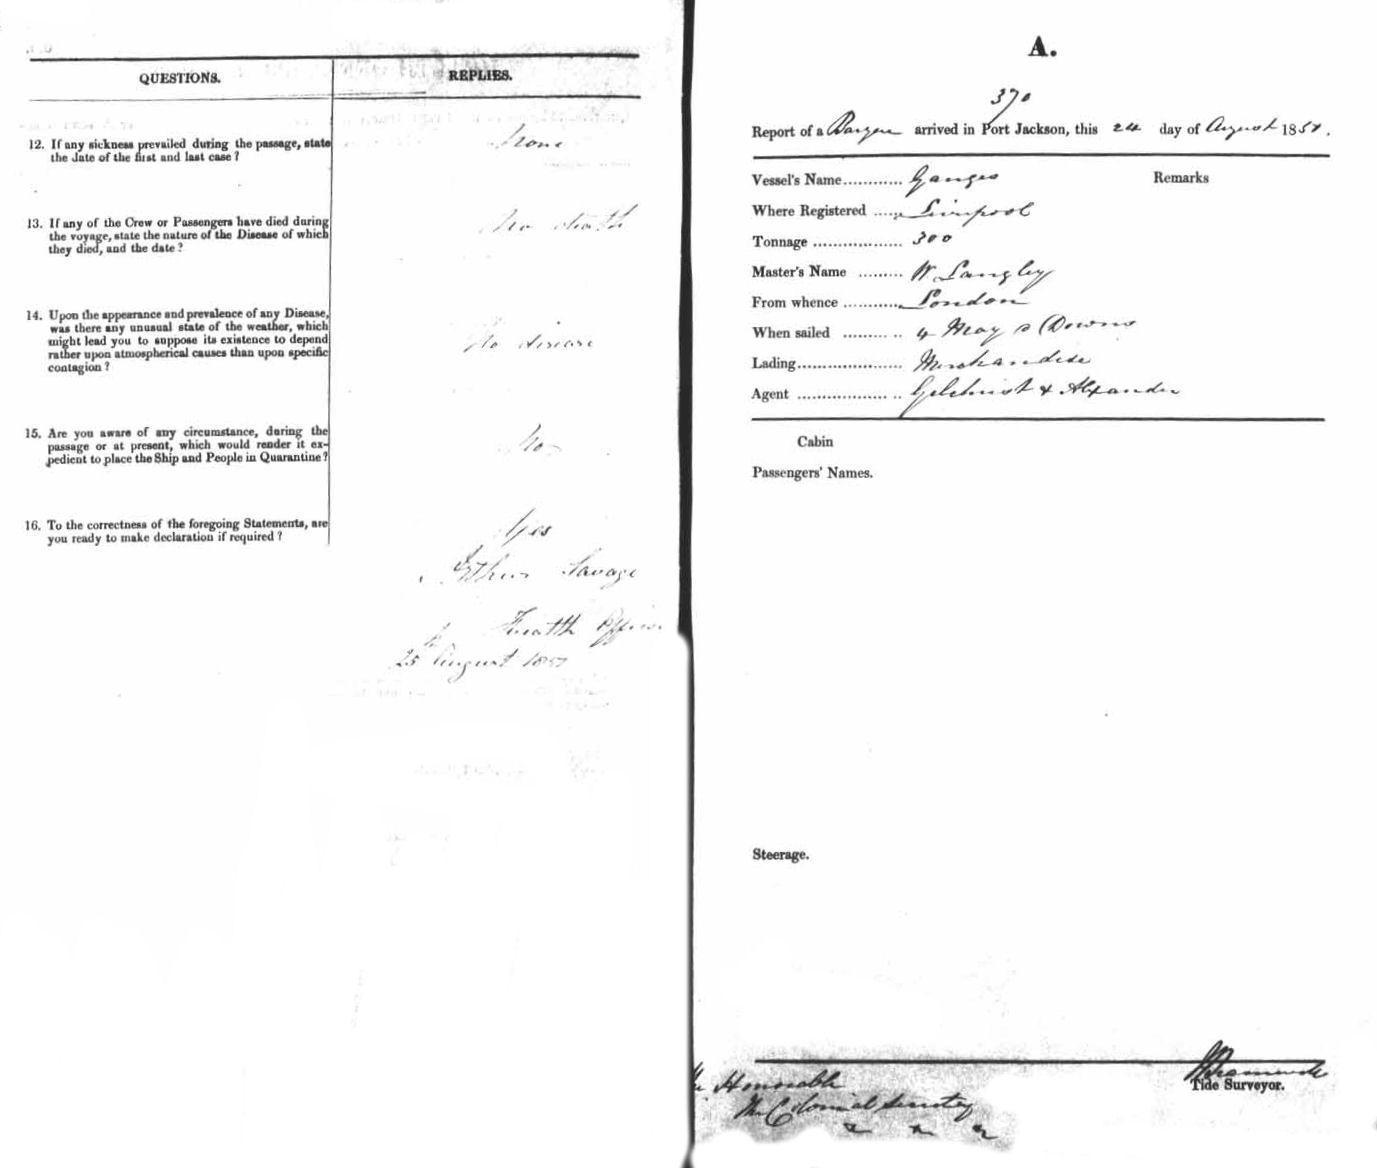 QUESTIONS. REPLIES.
12. If any sickness prevailed during the passage, state None
the date of the first and last case ?
13. If any of the Crew or Passengers have died during No death
the voyage, state the nature of the Disease of which
they died, and the date ?
14. Upon the appearance and prevalence of any Disease,
was there any unusual state of the weather, which
might lead you to suppose its existence to depend No disease
rather upon atmospherical causes than upon specific
contagion ?
15. Are you aware of any circumstance, during the
passage or at present, which would render it ex- No
pedient to place the Ship and People in Quarantine ?
16. To the correctness of the foregoing Statements, are Yes
you ready to make declaration if required ?
Savage
25th August 185
A.
370
Report of a arrived in Port Jackson, this 24 day of August 185
Vessel's Name............ Ganges Remarks
Where Registered ...... Liverpool
Tonnage .................. 300
Master's Name ......... W. Langley
From whence ............ London
When sailed ............ 4 May Downs
Lading..................... Merchandise
Agent .................... Gilchrist & Alexander
Cabin
Passengers' Names.
Steerage.
Tide Surveyor.
The Honorable
The Colonial Secretary